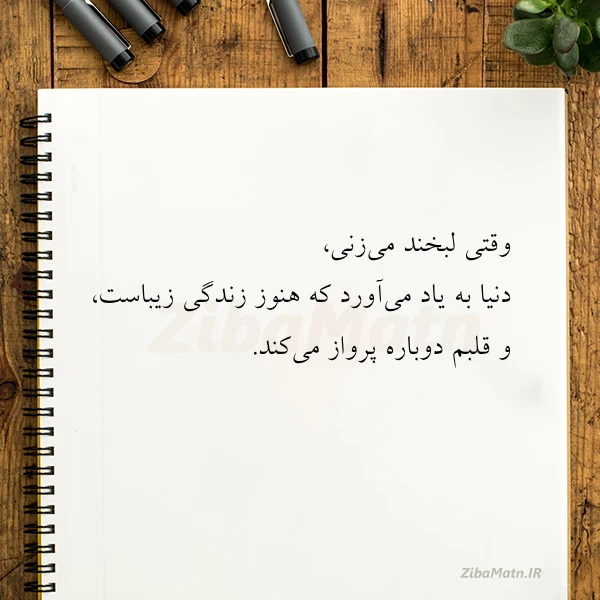 وقتی لبخند می‌زنی،
دنیا به یاد می‌آورد که هنوز زندگی زیباست،
و قلبم دوباره پرواز می‌کند.
ZibaMatn
ZibaMatn.IR